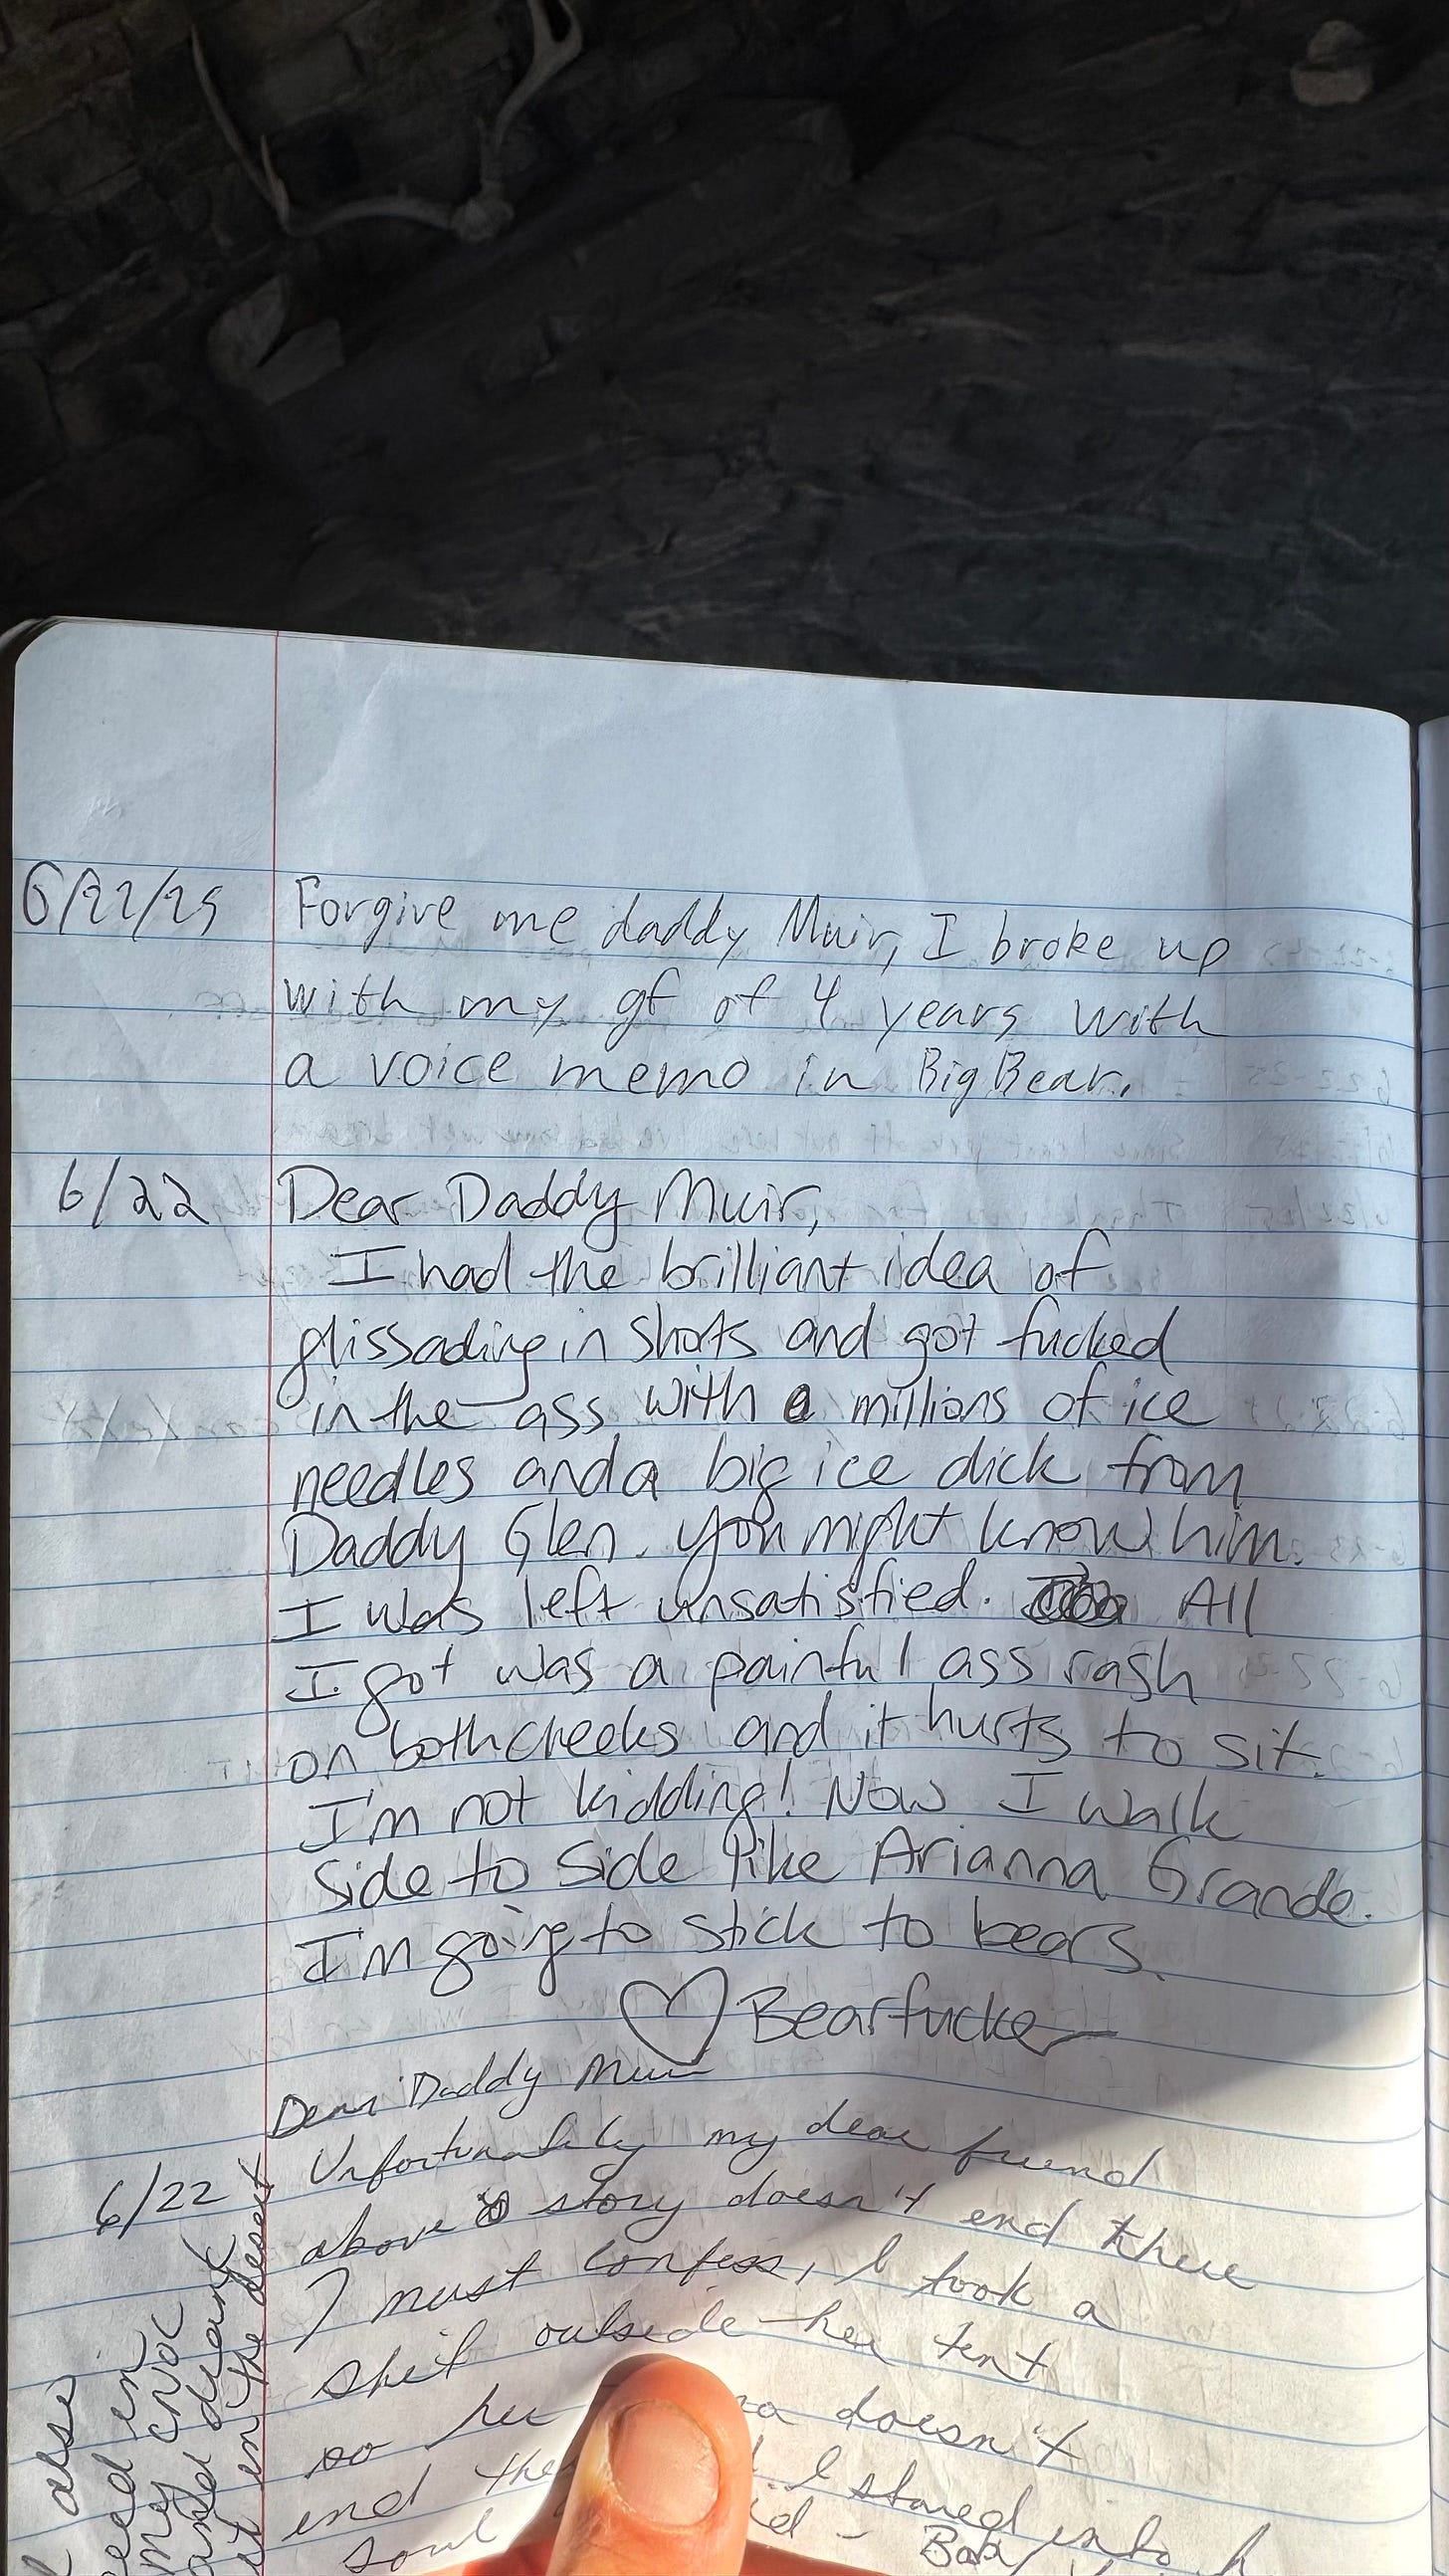 6/22/25 Forgive me daddy Muir, I broke up
with my gf of 4 years with
a voice memo in Big Bear.
6/22 Dear Daddy Muir,
I had the brilliant idea of
glissading in shorts and got fucked
in the ass with millions of ice
needles and a big ice dick from
Daddy Glen. You might know him.
I was left unsatisfied. All
I got was a painful ass rash
on both cheeks and it hurts to sit.
I'm not kidding! Now I walk
side to side like Arianna Grande.
I'm going to stick to bears.
♡ Bearfucker
Dear Daddy Muir
6/22 Unfortunately my dear friend
above story doesn't end there
I must confess, I took a
shit outside her tent
so her doesn't
end I stared into h
soul
and drank
in the desert